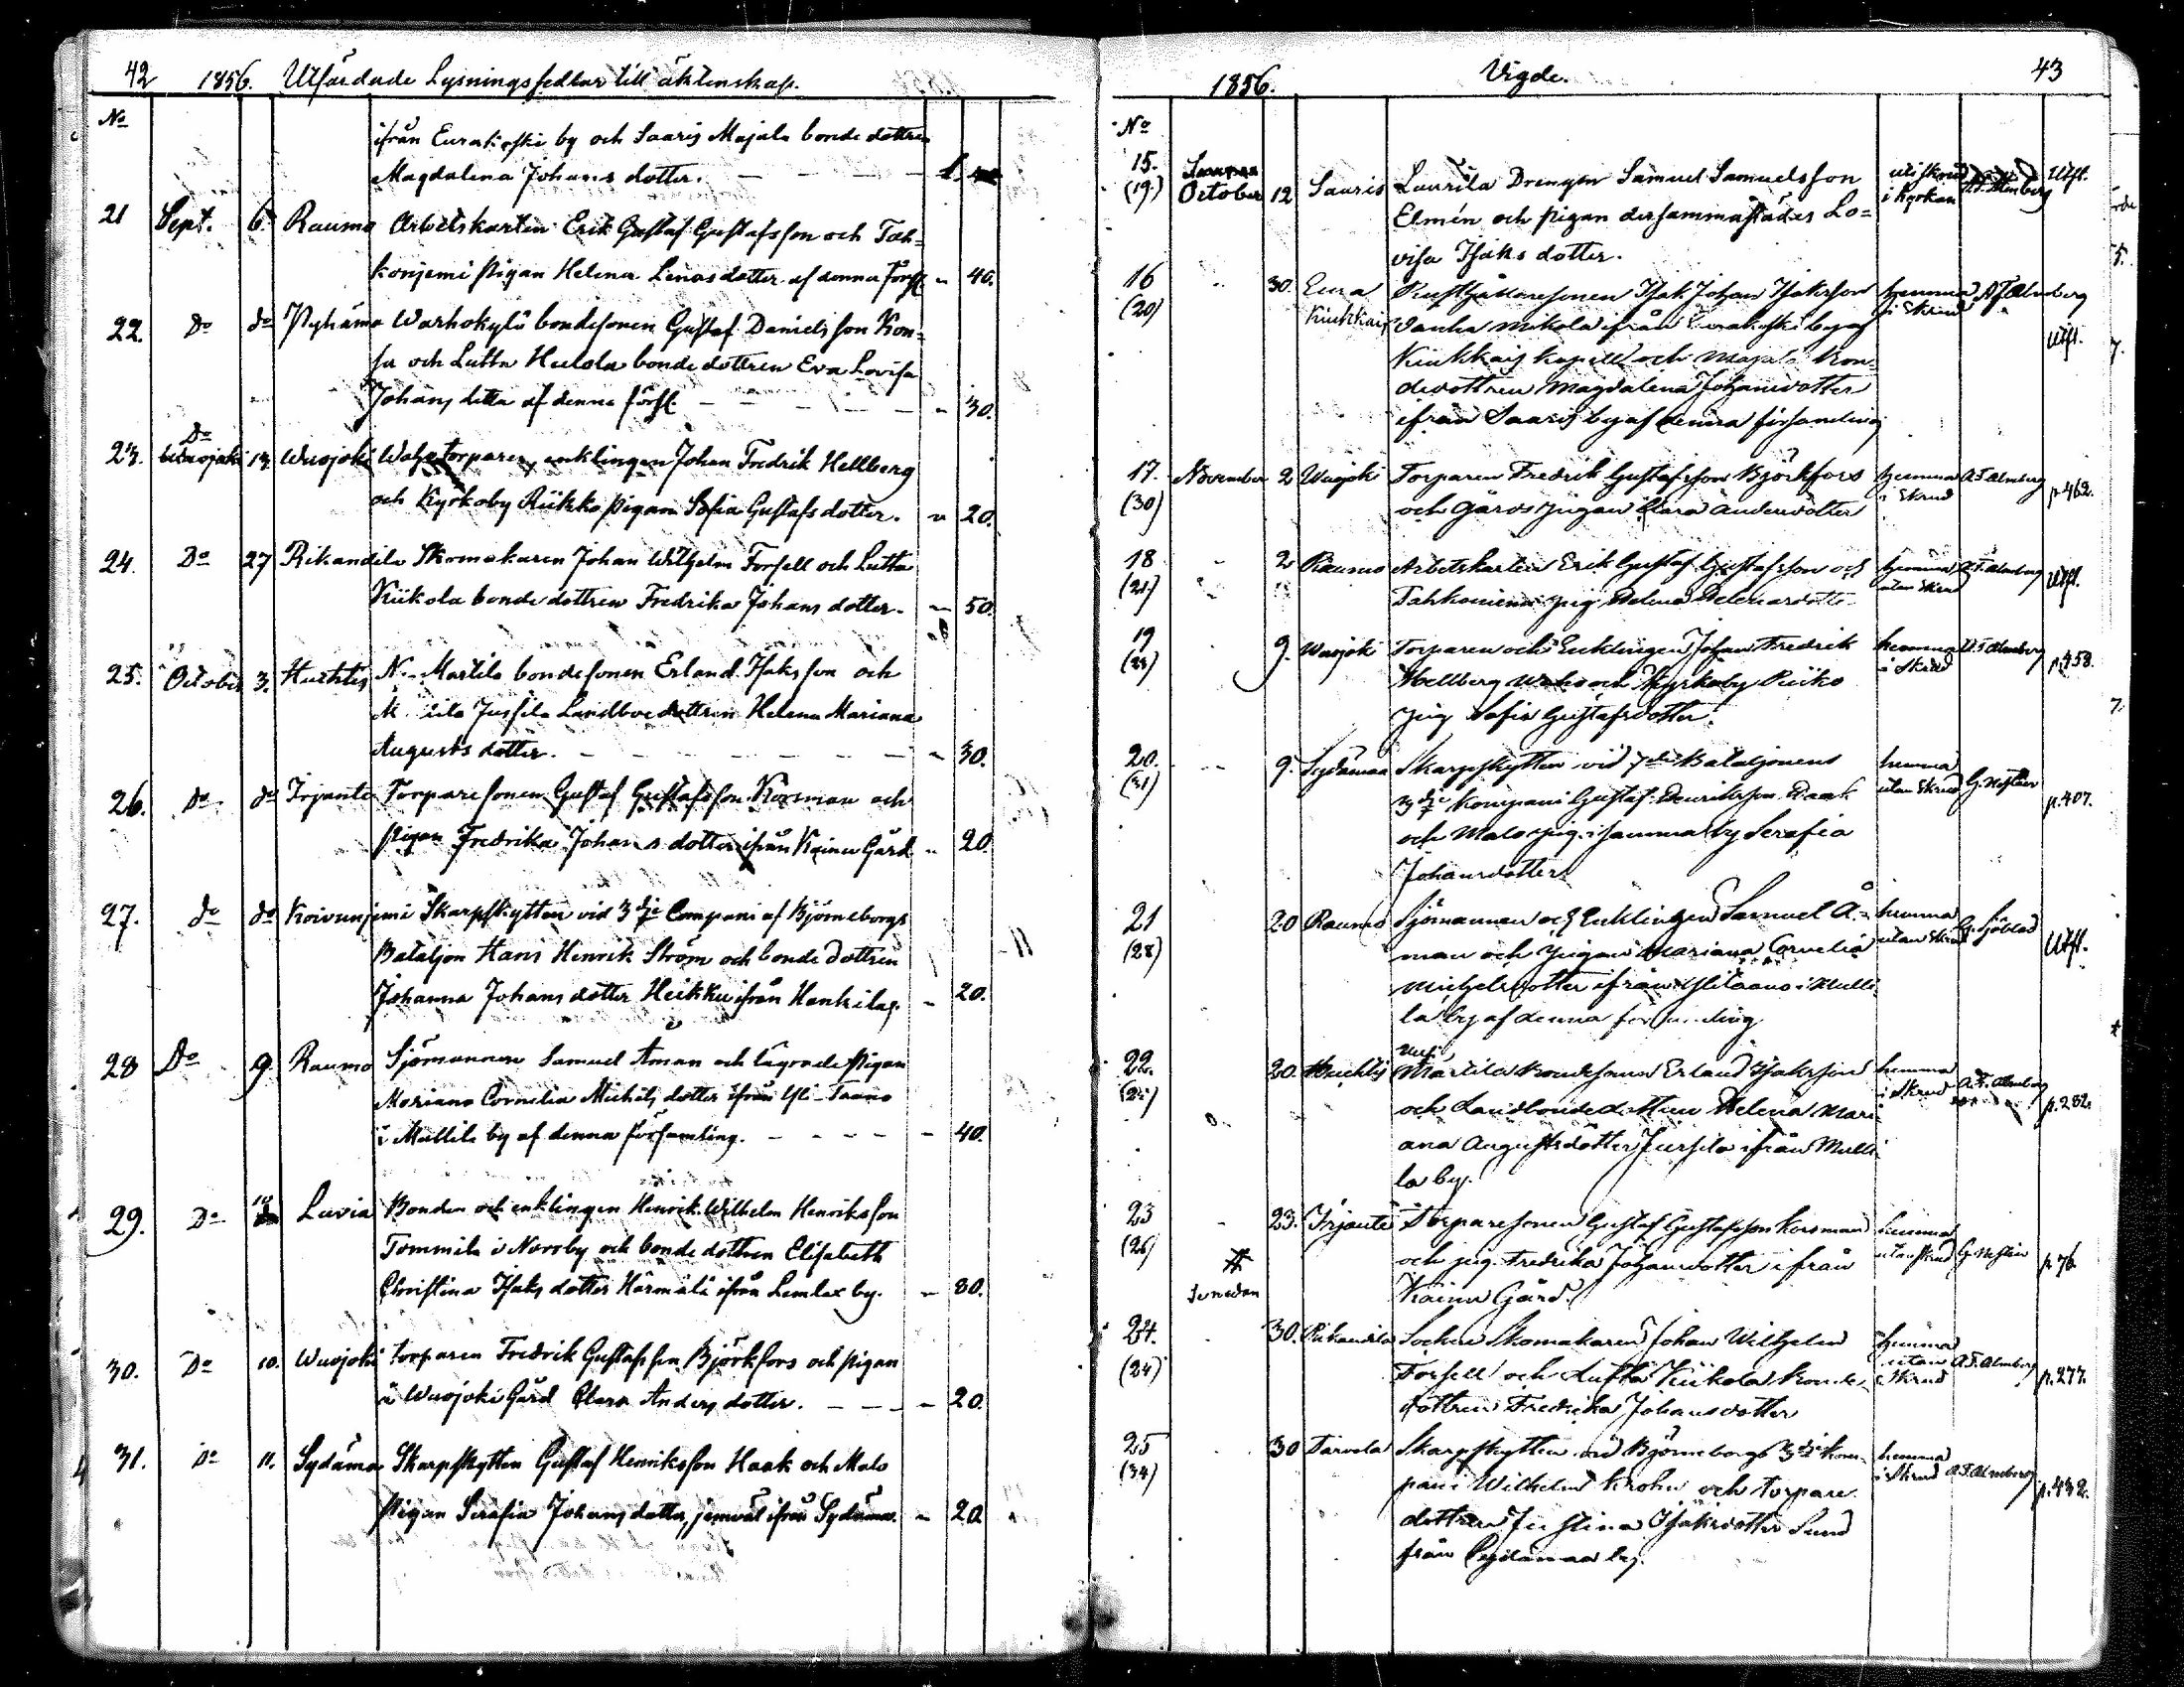 42 1856. Utfärdade Lysningssedlar till äktenskap.
No
ifrån Eurakoski by och Saaris Majala bonde dottren
Magdalena Johans dotter. — — — 1.
21 Sept. 6. Raumo Arbetskarlen Erik Gustaf Gustafsson och Tah=
konjemi pigan Helena Lenas dotter af denna förs. " 40.
22. Do do Pyhäma Warhokylä bondesonen Gustaf Danielsson Kon=
sa och Lutta Heulola bonde dottren Eva Lovisa
Johans dotter af denna förs. — — — " 30.
23. Do 13 Wuojoki torparen, enklingen Johan Fredrik Hellberg
och Kyrkoby Riikko pigan Sofia Gustafs dotter. " 20.
24. Do 27 Rikandila Skomakaren Johan Wilhelm Forsell och Lutta
Kiikola bonde dottren Fredrika Johans dotter. — 50.
25. October 3. Huchtis N. Martila bondesonen Erland Isaksson och
Jussila Landbonde dottren Helena Mariana
Augusts dotter. — — — — 30.
26. Do do Irjante Torparesonen Gustaf Gustafsson Korsman och
pigan Fredrika Johans dotter ifrån Kainu Gård " 20.
27. do do Koivunjemi Skarpskytten vid 3dje Compani af Björneborgs
Bataljon Hans Henrik Ström och bonde dottren
Johanna Johans dotter Heikku ifrån Hankila. — 20.
28 Do 9. Raumo Sjömannen Samuel Åman och pigan
Mariana Cornelia Michels dotter ifrån Yli-Taano
i Mullila by af denna församling. — — — 40.
29. Do 10 Luvia Bonden och enklingen Henrik Wilhelm Henriksson
Tommila i Norrby och bonde dottren Elisabeth
Christina Isaks dotter Härmälä ifrån Lemlax by. — 80.
30. Do 10. Wuojoki torparen Fredrik Gustafsson Björkfors och pigan
i Wuojoki Gård Clara Anders dotter. — — — 20.
31. Do 11. Sydäma Skarpskytten Gustaf Henriksson Haak och Malo
pigan Serafia Johans dotter, jemväl ifrån Sydäma. — 20
1856. Vigde. 43
No
15. (19) October 12 Saaris Laurila Drengen Samuel Samuelsson uti skrud i Kyrkan A.F. Almberg Utfl.
Elmén och pigan dersammastädes Lo=
visa Isaks dotter.
16 (20) 30. Eura Kiukkais Rusthållaresonen Isak Johan Isaksson hemma i Skrud A.F. Almberg
Mikola ifrån Eurakoski by af Utfl.
Kiukkais kapell och Majala Bon=
dedottren Magdalena Johansdotter
ifrån Saaris by af denna församling
17. (30) November 2 Wuojoki Torparen Fredrik Gustafsson Björkfors hemma i Skrud A.F. Almberg p. 462.
och Gårds pigan Clara Andersdotter
18 (21) 2 Raumo Arbetskarlen Erik Gustaf Gustafsson och hemma utan Skrud A.F. Almberg Utfl.
pig Helena
19 (23) 9. Wuojoki Torparen och Enklingen Johan Fredrik hemma i Skrud A.F. Almberg p. 458.
Hellberg och Kyrkoby Riiko
pig Sofia Gustafsdotter.
20. (31) 9. Sydämaa Skarpskytten vid Bataljonens hemma utan Skrud p. 407.
3dje Kompani Gustaf Henriksson Haak
och Malo pig. i samma by Serafia
Johansdotter
21 (28) 20 Raumo Sjömannen och Enklingen Samuel Å= hemma utan Skrud G. Sjöblad Utfl.
man och pigan Mariana Cornelia
Michelsdotter ifrån Ylitaano i Mulli
la by af denna församling
22. (25) 20. Huchtis Martila Bondesonen Erland Isaksson hemma i Skrud A.F. Almberg p. 282.
och Landbondedottren Helena Mari
ana Augustsdotter Jussila ifrån Mulli
la by.
23 (26) 23. Irjante Torparesonen Gustaf Gustafsson Korsman hemma utan skrud p. 76.
och pig. Fredrika Johansdotter ifrån
Kainu Gård.
24. (24) 30. Rikandila Socken Skomakaren Johan Wilhelm hemma utan Skrud A.F. Almberg p. 277.
Forsell och Lutta Kiikola Bonde
dottren Fredrika Johansdotter
25 (34) 30 Tarvola Skarpskytten vid Björneborgs 3dje Kom= hemma i Skrud A.F. Almberg p. 432.
pani Wilhelm Krohn och torpare
dottren Justina Isaksdotter Sund
från Sydämaa by.